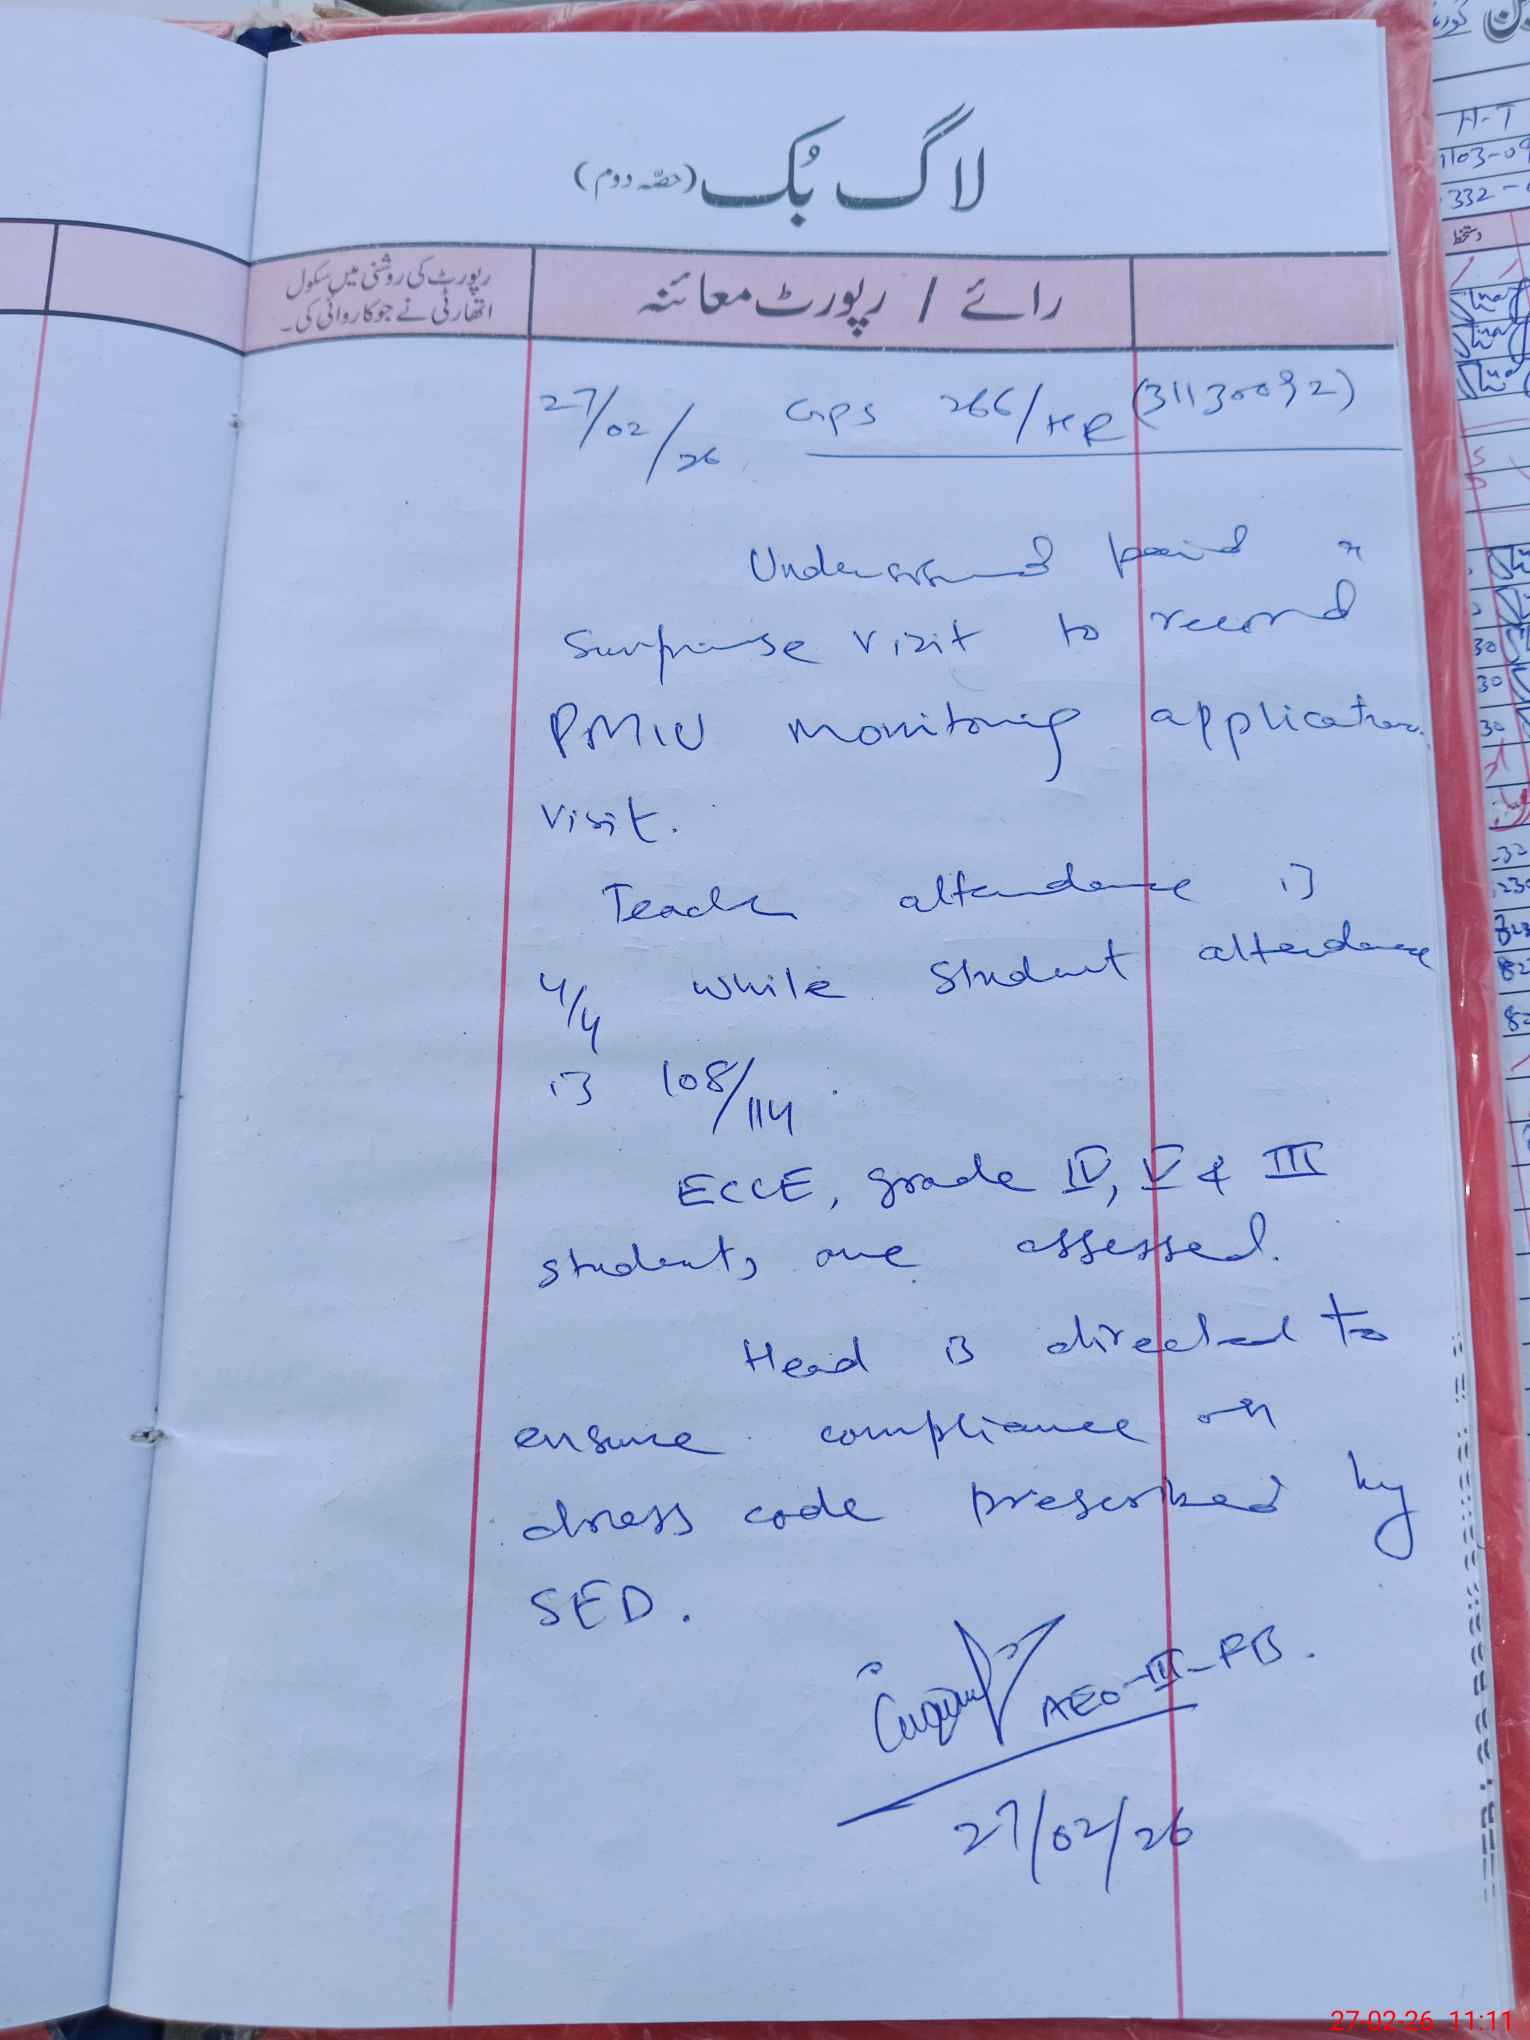 لاگ بُک (حصّہ دوم)
رائے / رپورٹ معائنہ
رپورٹ کی روشنی میں سکول
اتھارٹی نے جو کاروائی کی۔
27/02/26 GPS 266/HR (31130092)
Undersigned paid a
Surprise visit to record
PMIU monitoring application
visit.
Teacher attendance is
4/4 while student attendance
is 108/114.
ECCE, grade IV, V & III
students are assessed.
Head is directed to
ensure compliance on
dress code prescribed by
SED.
AEO-III-FB.
27/02/26
H-T
1103-09
332-
دستخط
30
30
30
27-02-26 11:11